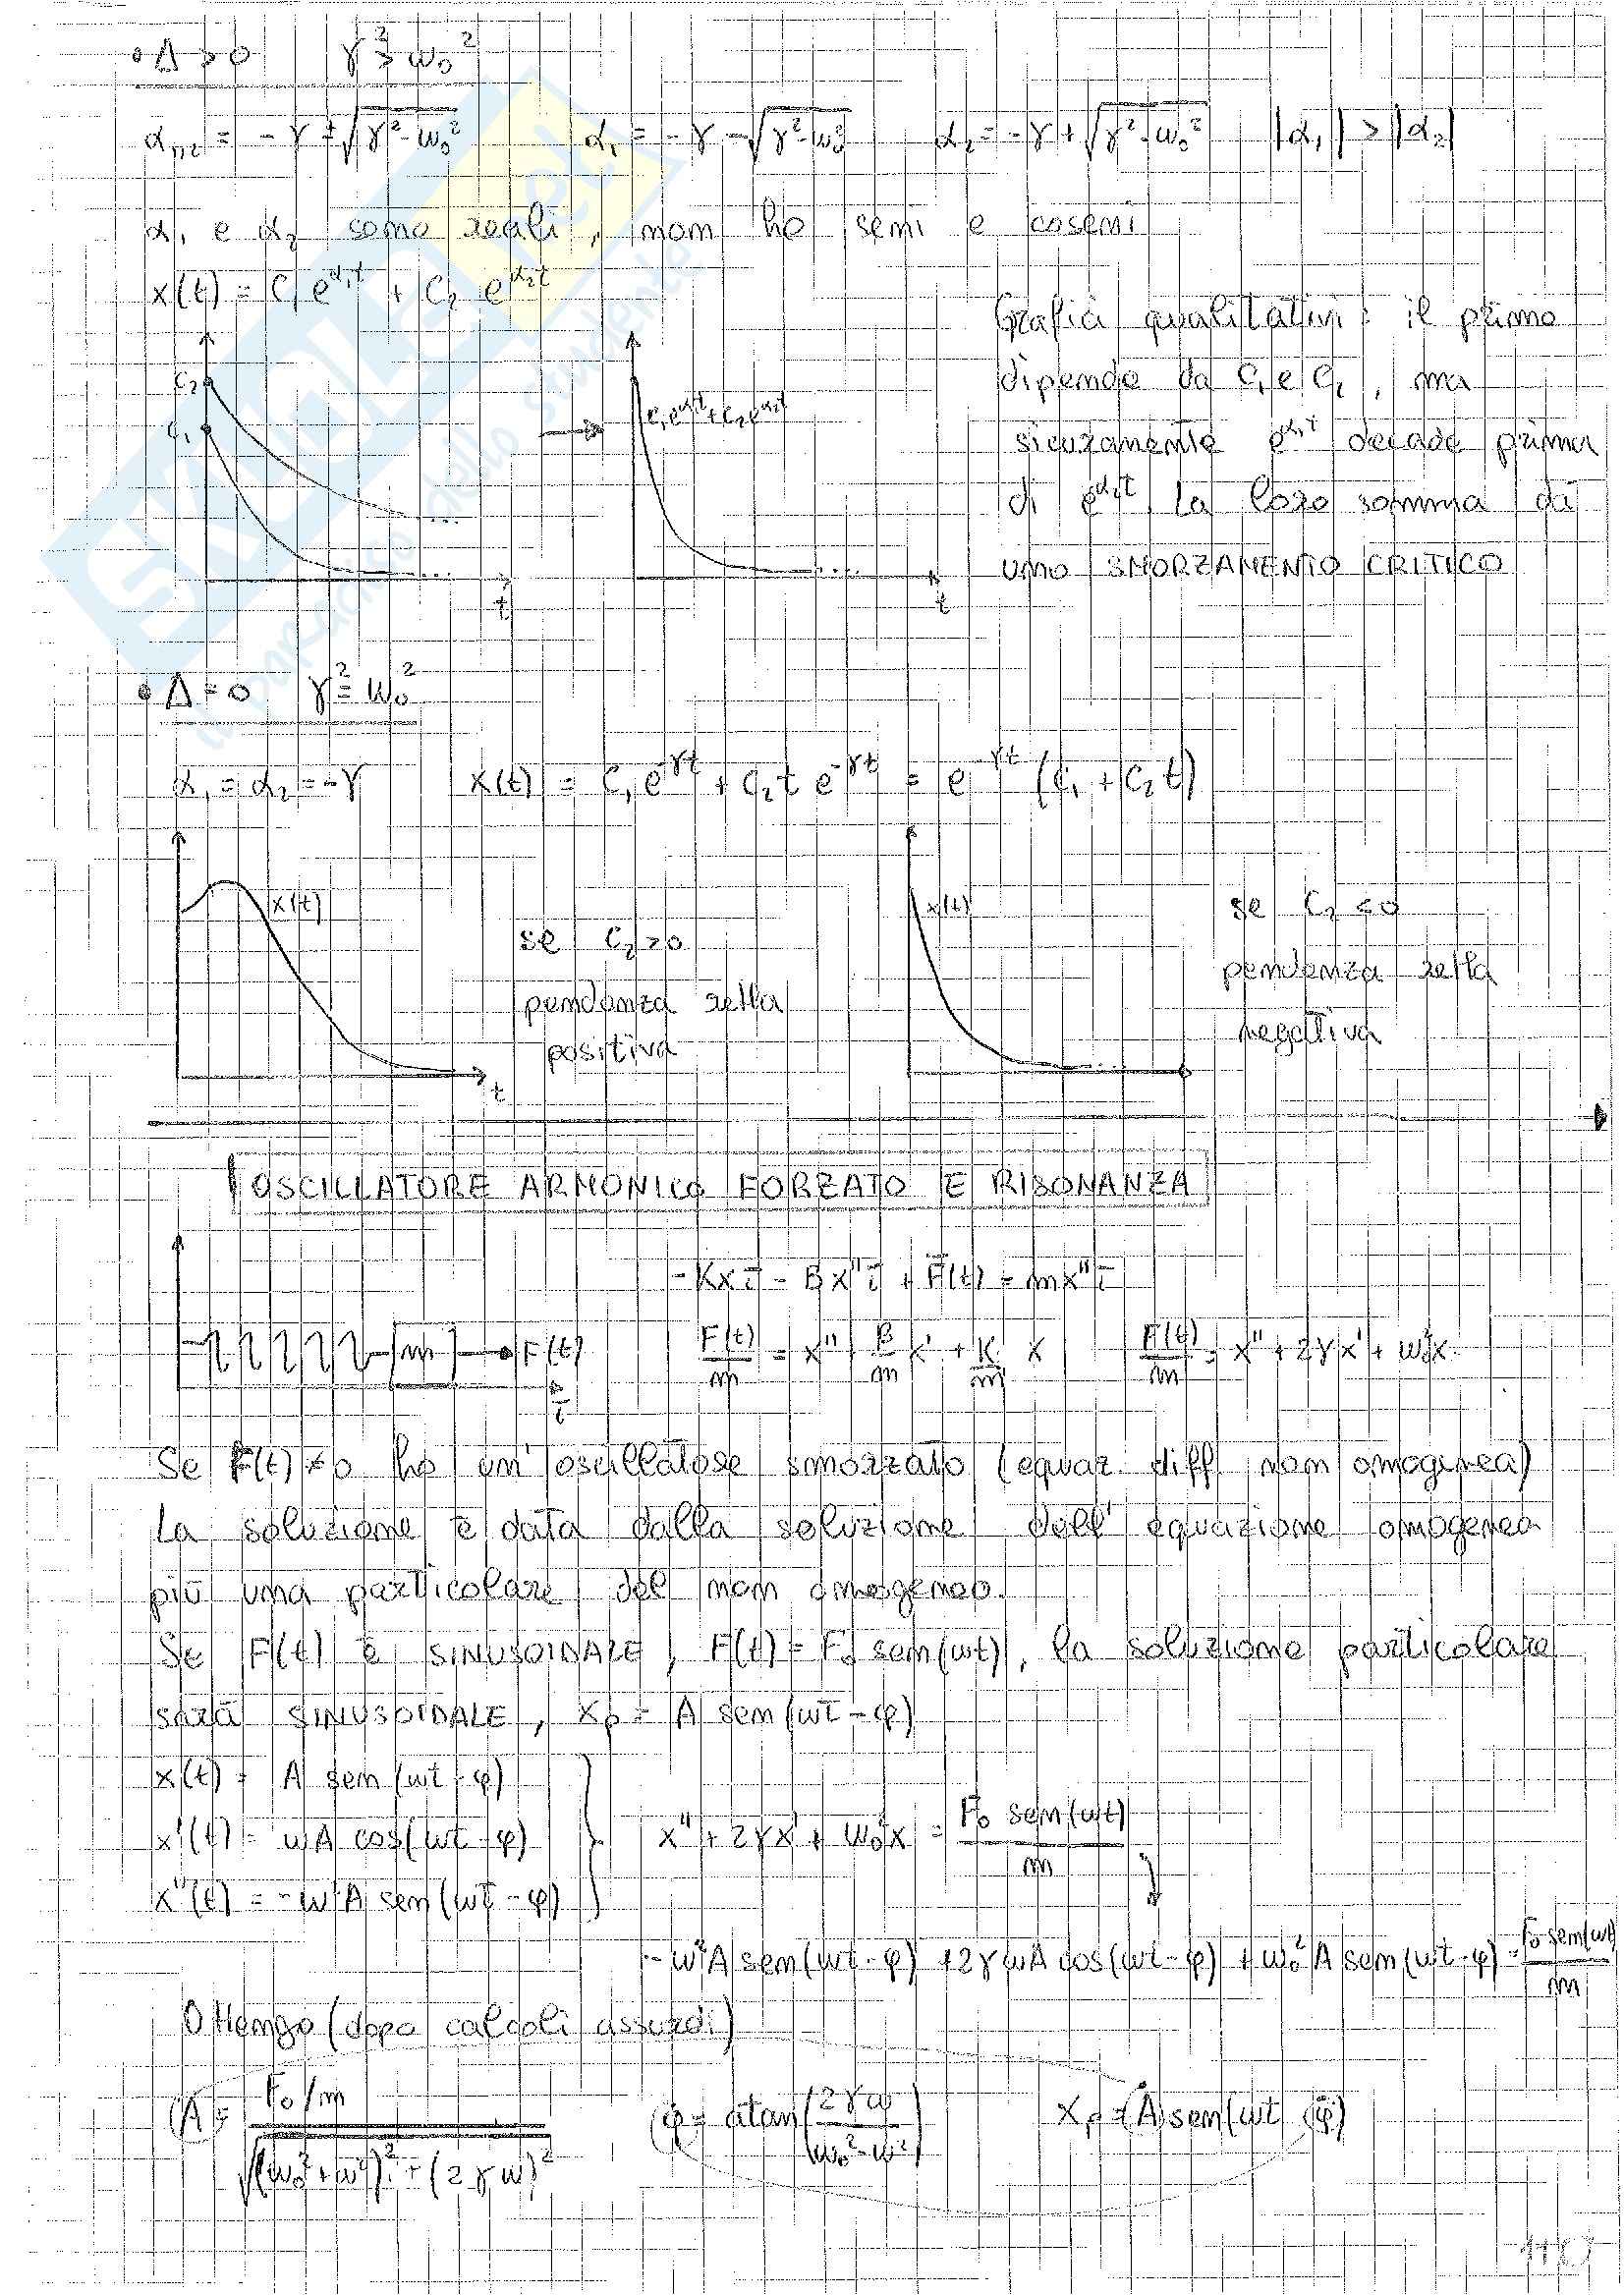 • Δ > 0   γ² > ω₀²
α₁,₂ = -γ ± √(γ² - ω₀²)   α₁ = -γ - √(γ² - ω₀²)   α₂ = -γ + √(γ² - ω₀²)   |α₁| > |α₂|
α₁ e α₂ sono reali, non ho seni e coseni
x(t) = C₁ e^α₁t + C₂ e^α₂t
Grafici qualitativi: il primo
dipende da C₁ e C₂, ma
sicuramente e^α₁t decade prima
di e^α₂t la loro somma dà
uno SMORZAMENTO CRITICO
C₂
C₁
t
C₁e^α₁t + C₂e^α₂t
t
• Δ = 0   γ² = ω₀²
α₁ = α₂ = -γ   x(t) = C₁ e^-γt + C₂ t e^-γt = e^-γt (C₁ + C₂ t)
x(t)
t
se C₂ > 0
pendenza retta
positiva
x(t)
se C₂ < 0
pendenza retta
negativa
OSCILLATORE ARMONICO FORZATO E RISONANZA
-Kx i - Bx'' i + F(t) = mx'' i
m F(t)
i
F(t)/m = x'' + B/m x' + K/m x   F(t)/m = x'' + 2γx' + ω₀²x
Se F(t) ≠ 0 ho un'oscillatore smorzato (equaz. diff non omogenea)
La soluzione è data dalla soluzione dell'equazione omogenea
più una particolare del non omogeneo.
Se F(t) è SINUSOIDALE, F(t) = F₀ sen(ωt), la soluzione particolare
sarà SINUSOIDALE, xp = A sen(ωt - φ)
x(t) = A sen(ωt - φ)
x'(t) = ωA cos(ωt - φ)
x''(t) = -ω²A sen(ωt - φ)
x'' + 2γx' + ω₀²x = F₀ sen(ωt)/m
-ω²A sen(ωt - φ) + 2γωA cos(ωt - φ) + ω₀²A sen(ωt - φ) = F₀ sen(ωt)/m
Ottengo (dopo calcoli assurdi)
A = F₀/m / √((ω₀² + ω²)² + (2γω)²)   φ = atan(2γω / (ω₀² - ω²))   xp = A sen(ωt - φ)